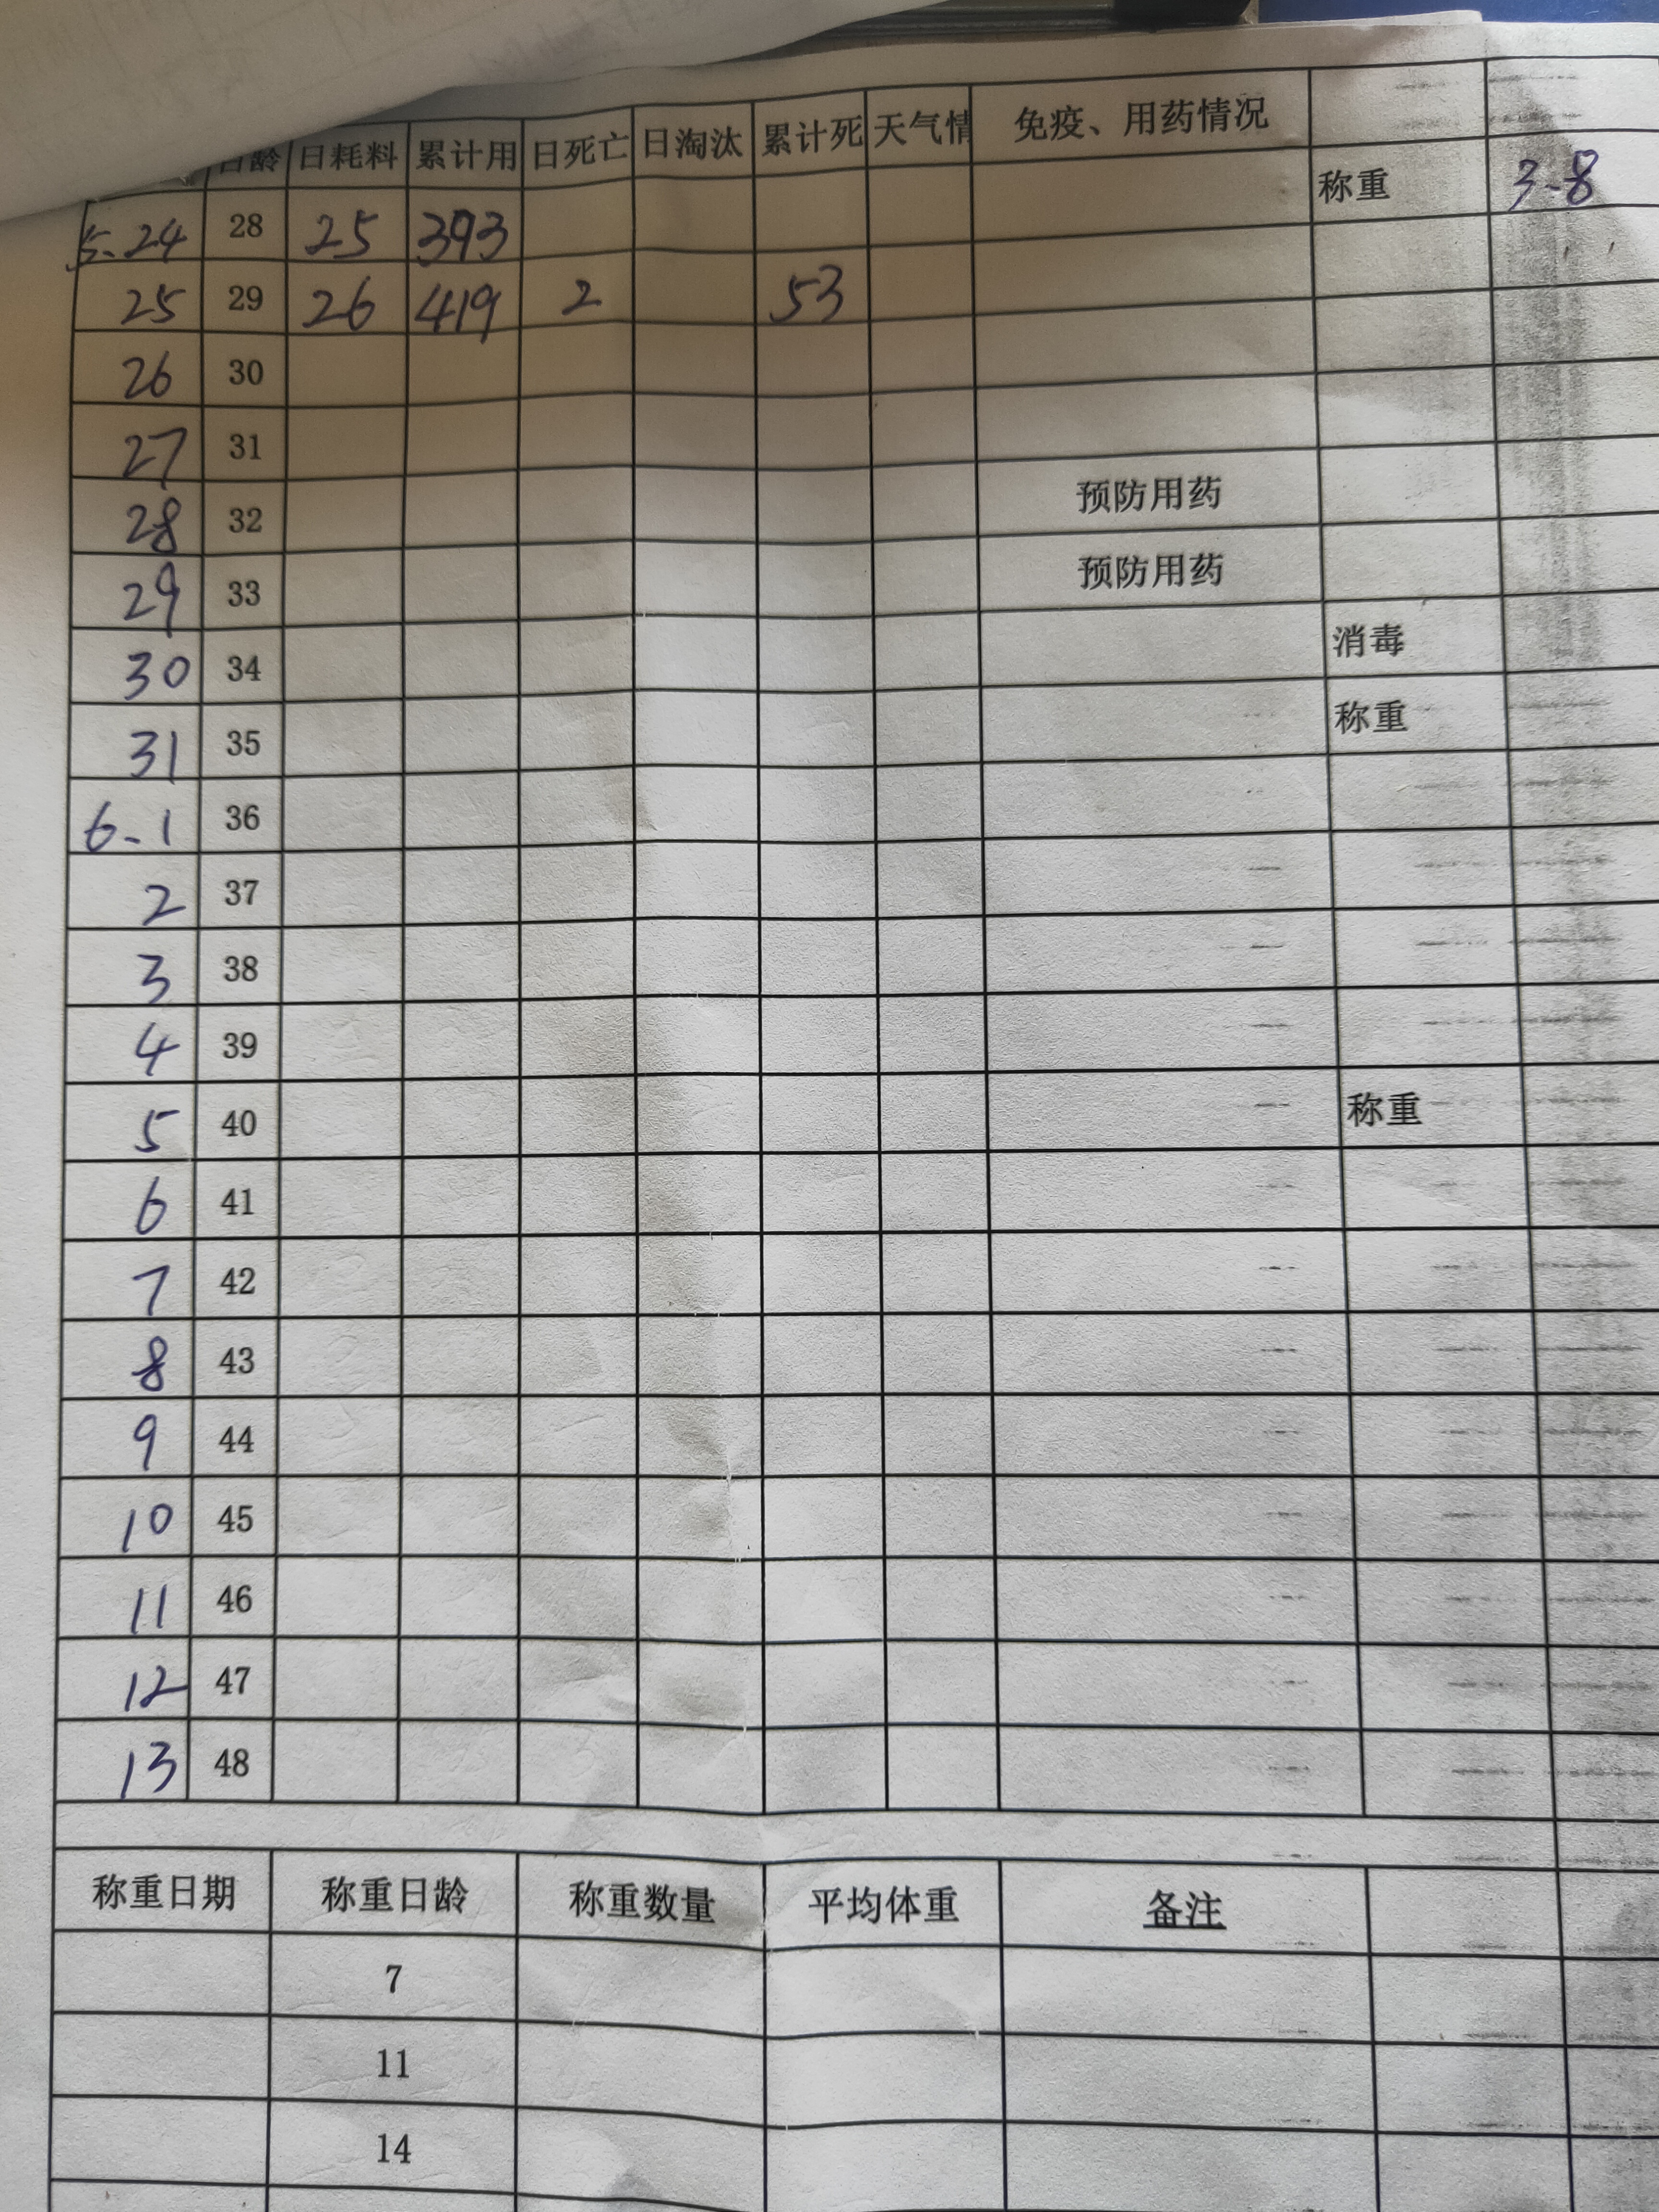 日龄 日耗料 累计用 日死亡 日淘汰 累计死 天气情 免疫、用药情况
5.24 28 25 393 称重 3-8
25 29 26 419 2 53
26 30
27 31
28 32 预防用药
29 33 预防用药
30 34 消毒
31 35 称重
6-1 36
2 37
3 38
4 39
5 40 称重
6 41
7 42
8 43
9 44
10 45
11 46
12 47
13 48
称重日期 称重日龄 称重数量 平均体重 备注
7
11
14